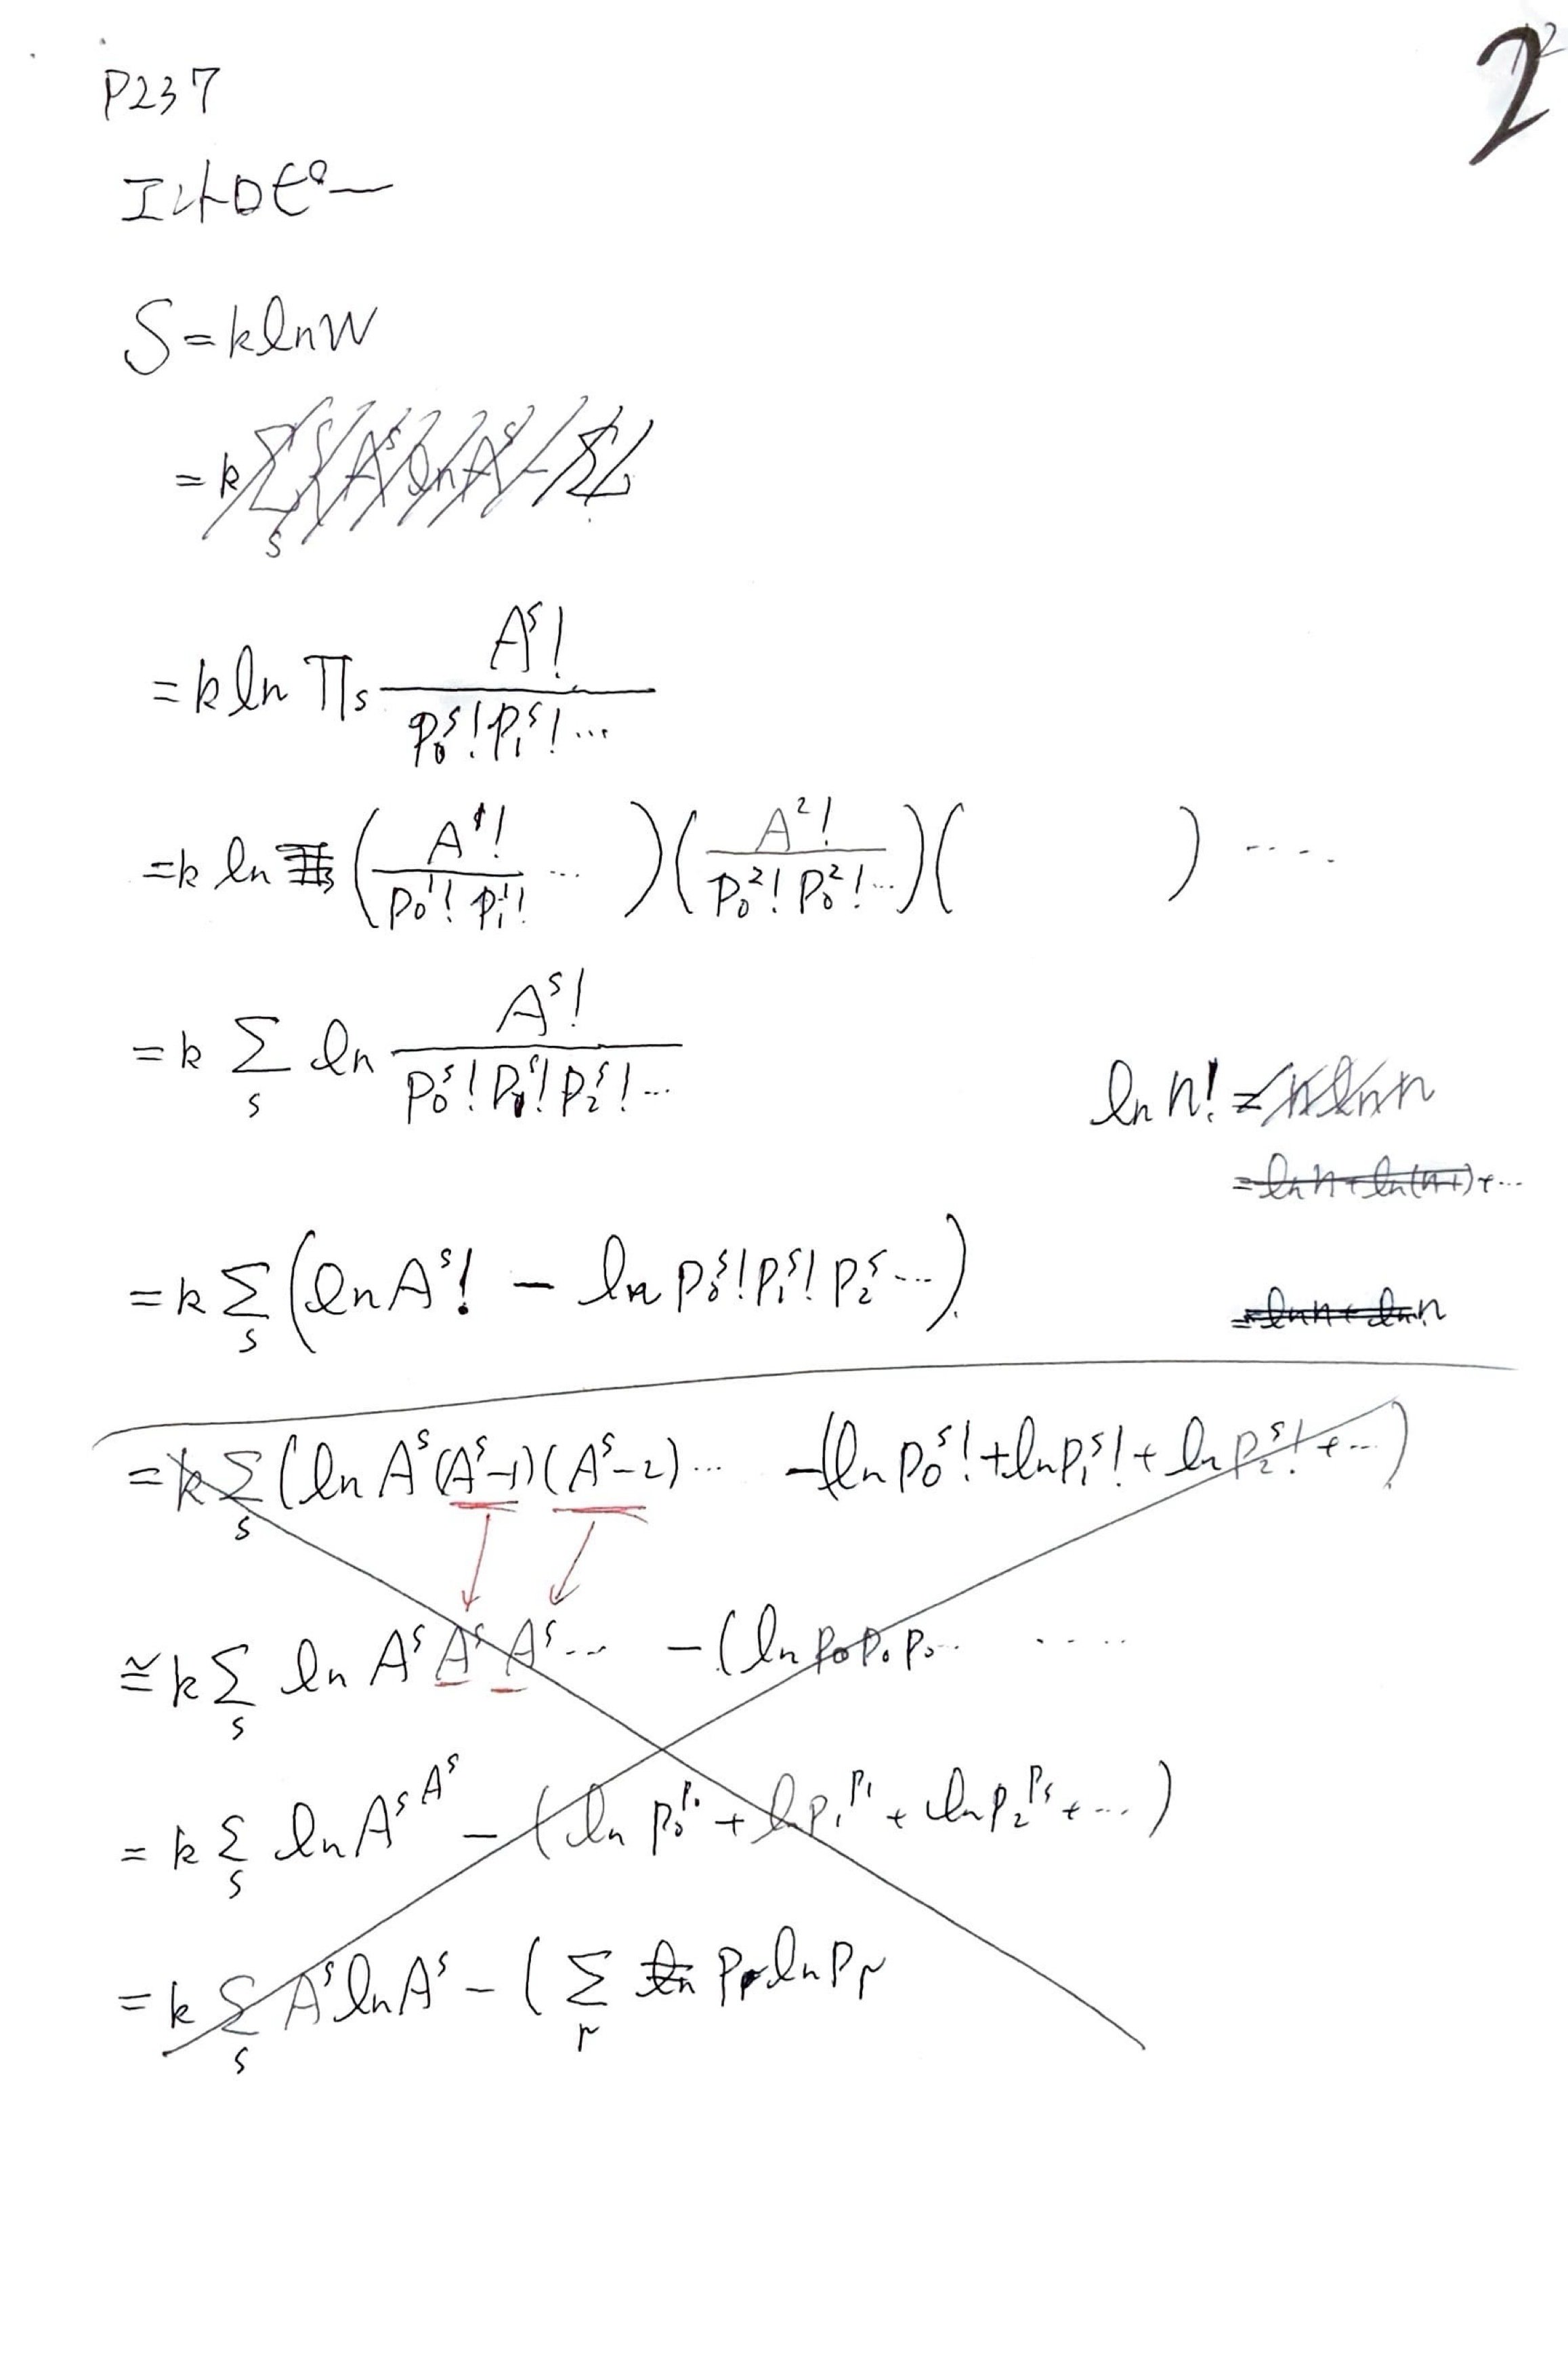 2
P237
エントロピー
S = k ln W
= k Σ_s { A^s ln A^s - Σ
= k ln Π_s A^s! / p_0^s! p_1^s! ...
= k ln ( A^1! / p_0^1! p_1^1! ... ) ( A^2! / p_0^2! p_0^2! ... ) (      ) ....
= k Σ_s ln A^s! / p_0^s! p_1^s! p_2^s! ...
ln n! = n ln n
= ln n + ln(n-1) + ...
= k Σ_s ( ln A^s! - ln p_0^s! p_1^s! p_2^s ... )
= ln n + ln n
= k Σ_s ( ln A^s (A^s-1)(A^s-2) ... - (ln p_0^s! + ln p_1^s! + ln p_2^s! + ... )
≅ k Σ_s ln A^s A^s A^s ... - ( ln p_0 p_0 p_0 ... .....
= k Σ_s ln A^s^A^s - ( ln p_0^p_0 + ln p_1^p_1 + ln p_2^p_s + ... )
= k Σ_s A^s ln A^s - ( Σ_r p_r ln p_r